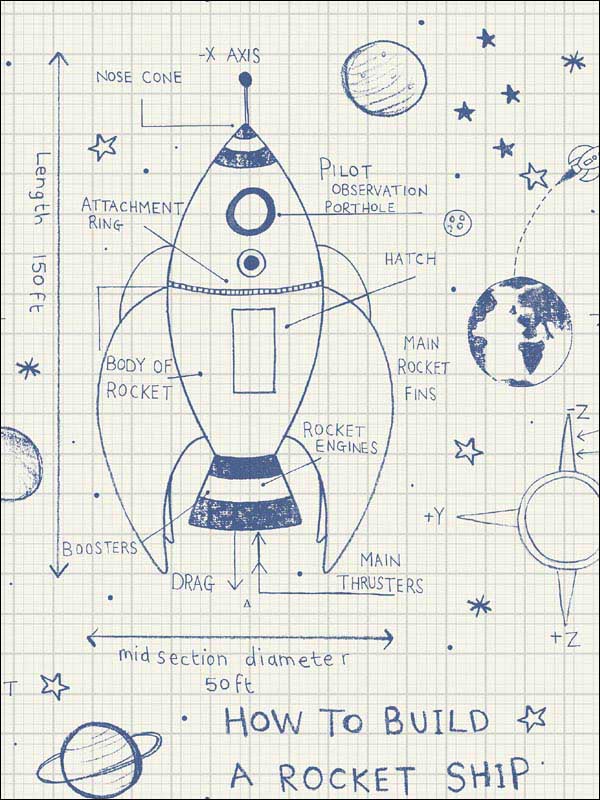 -X AXIS
NOSE CONE
PILOT
OBSERVATION
PORTHOLE
Length 150ft
ATTACHMENT
RING
HATCH
MAIN
ROCKET
FINS
BODY OF
ROCKET
-Z
ROCKET
ENGINES
+Y
BOOSTERS
DRAG
MAIN
THRUSTERS
+Z
midsection diameter
50ft
T
HOW TO BUILD
A ROCKET SHIP